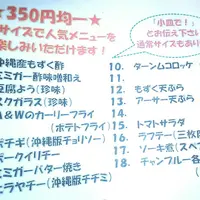 ★350円均一★
サイズで人気メニューを
楽しみいただけます！
「小皿で！」
とお伝え下さい
通常サイズもあり
沖縄産もずく酢
ミミガー酢味噌和え
豆腐よう（珍味）
スクガラス（珍味）
A&Wのカーリーフライ
（ポテトフライ）
ポチギ（沖縄版チョリソー）
ポークイリチー
ミミガーバター焼き
ヒラヤチー（沖縄版チヂミ）
10. ターンムコロッケ
12. もずく天ぷら
13. アーサー天ぷら
15. トマトサラダ
16. ラフテー（三枚肉
17. ソーキ煮（スペ
18 チャンプルー各